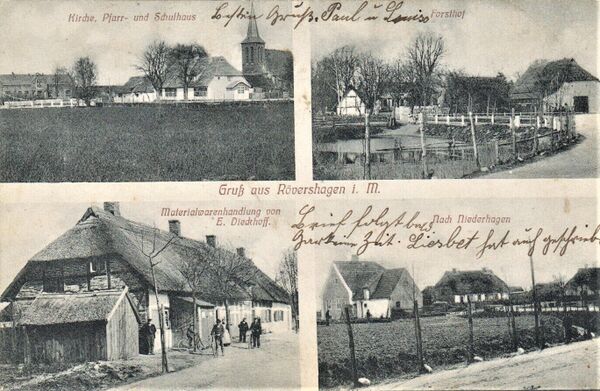 Kirche, Pfarr- und Schulhaus
Besten Gruß. Paul u Louise
Forsthof
Gruß aus Rövershagen i. M.
Materialwarenhandlung von
E. Dieckhoff.
Nach Niederhagen
Brief folgt bas
Zeit. Liesbet hat auch geschrieb